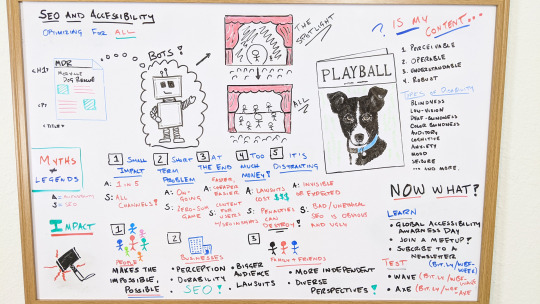 SEO AND ACCESSIBILITY
OPTIMIZING FOR ALL
BOTS!
THE SPOTLIGHT
ALL
? IS MY CONTENT...
1. PERCEIVABLE
2. OPERABLE
3. UNDERSTANDABLE
4. ROBUST
TYPES OF DISABILITY
BLINDNESS
LOW-VISION
DEAF-BLINDNESS
COLOR BLINDNESS
AUDITORY
COGNITIVE
ANXIETY
MOOD
SEIZURE
... AND MORE
PLAYBALL
<H1>
MDR
DOG RESCUE
<P>
<TITLE>
MYTHS & LEGENDS
A: ACCESSIBILITY
S: SEO
1 SMALL IMPACT
A: 1 IN 5
S: ALL CHANNELS!
2 SHORT TERM PROBLEM
A: ON-GOING
S: ZERO-SUM GAME
3 AT THE END
A: FASTER, CHEAPER, EASIER
S: CONTENT FOR USERS
4 TOO MUCH MONEY!
A: LAWSUITS COST $$$
S: PENALTIES CAN DESTROY!
5 IT'S DISTRACTING
A: INVISIBLE OR EXPECTED
S: BAD/UNETHICAL SEO IS OBVIOUS AND UGLY
IMPACT
1
PEOPLE
MAKES THE IMPOSSIBLE, POSSIBLE
2
BUSINESSES
• PERCEPTION
• DURABILITY
SEO!
• BIGGER AUDIENCE
• LAWSUITS
3
FAMILY + FRIENDS
• MORE INDEPENDENT
• DIVERSE PERSPECTIVES!
NOW WHAT?
LEARN
• GLOBAL ACCESSIBILITY AWARENESS DAY
• JOIN A MEETUP!
• SUBCRIBE TO A NEWSLETTER
TEST
• WAVE
• AXE